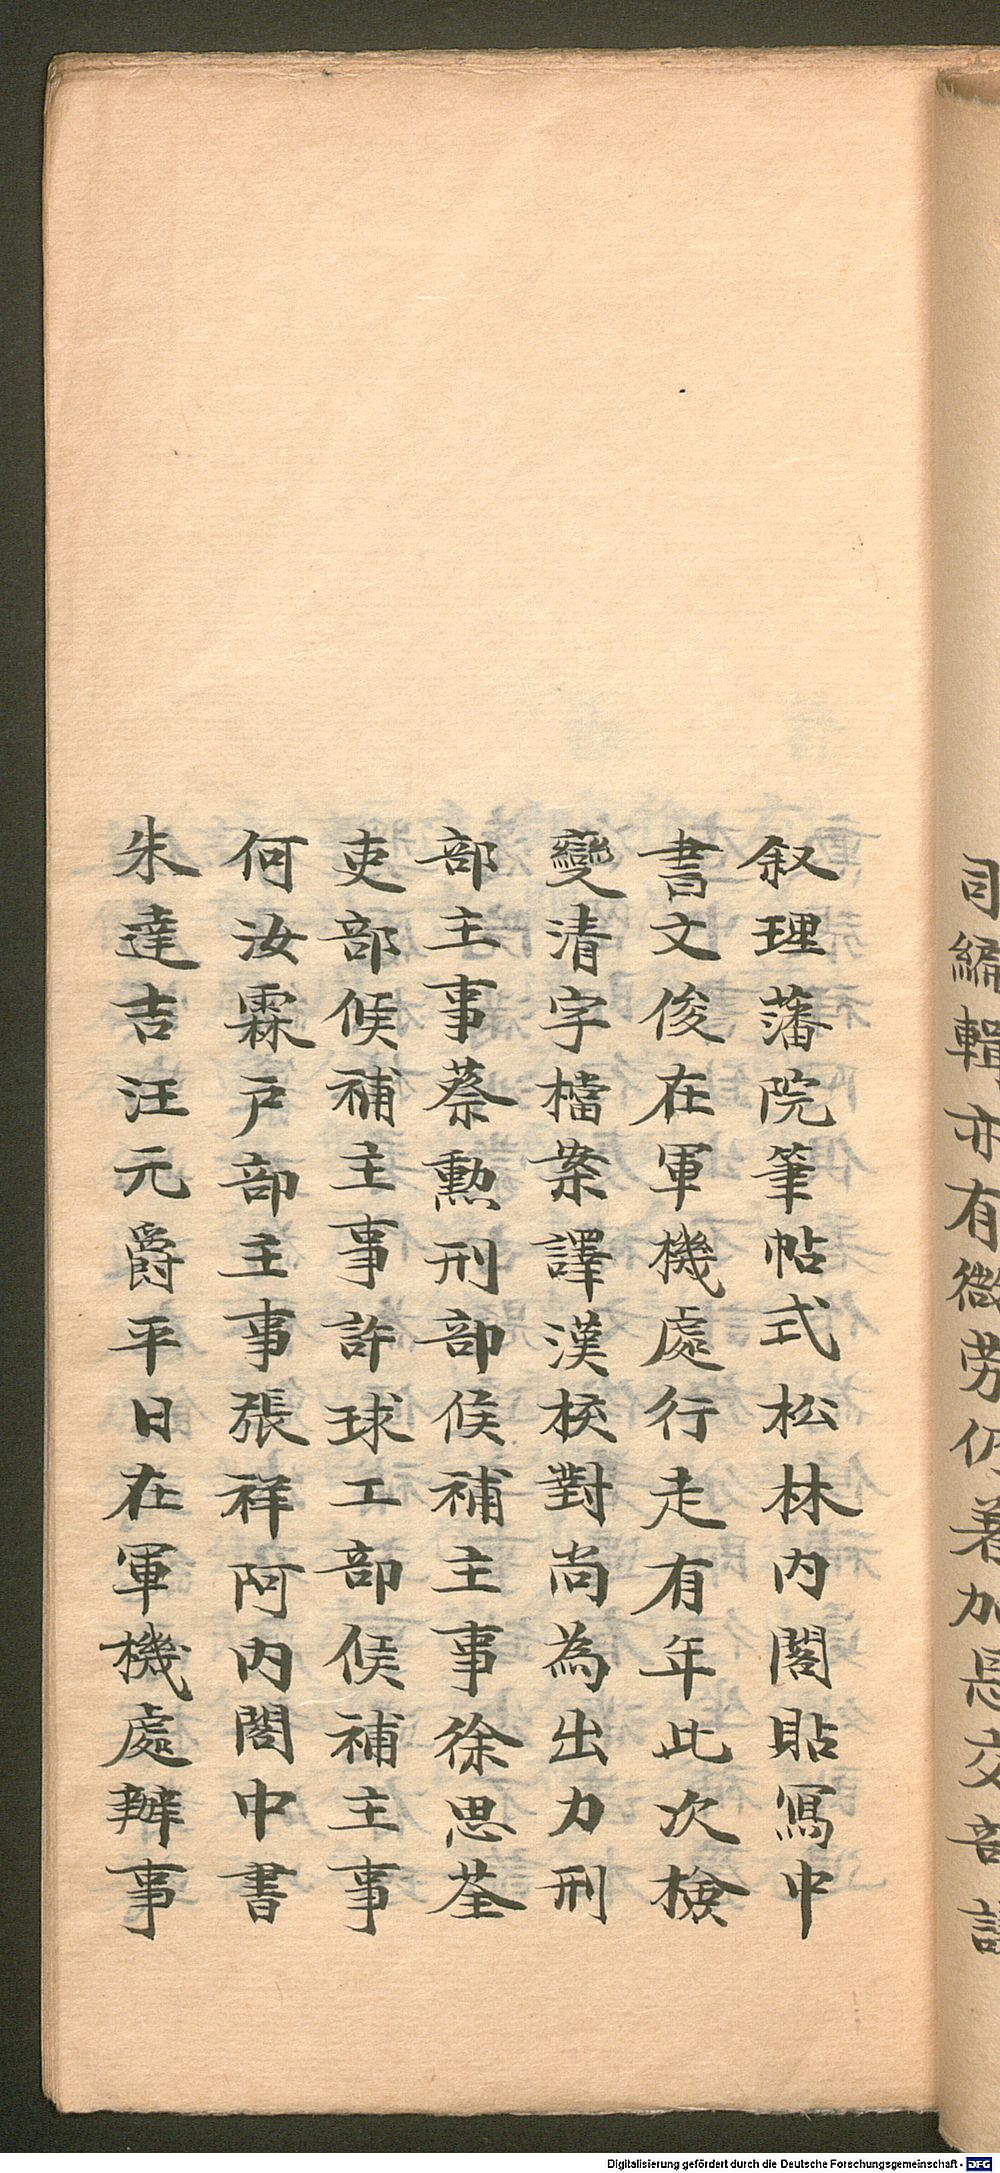 司編輯亦有微勞仍著加恩交部議
叙理藩院筆帖式松林内閣貼寫中
書文俊在軍機處行走有年此次檢
變清字檔案譯漢校對尚為出力刑
部主事蔡勲刑部候補主事徐思荃
吏部候補主事許球工部候補主事
何汝霖户部主事張祥阿内閣中書
朱達吉汪元爵平日在軍機處辦事
Digitalisierung gefördert durch die Deutsche Forschungsgemeinschaft - DFG